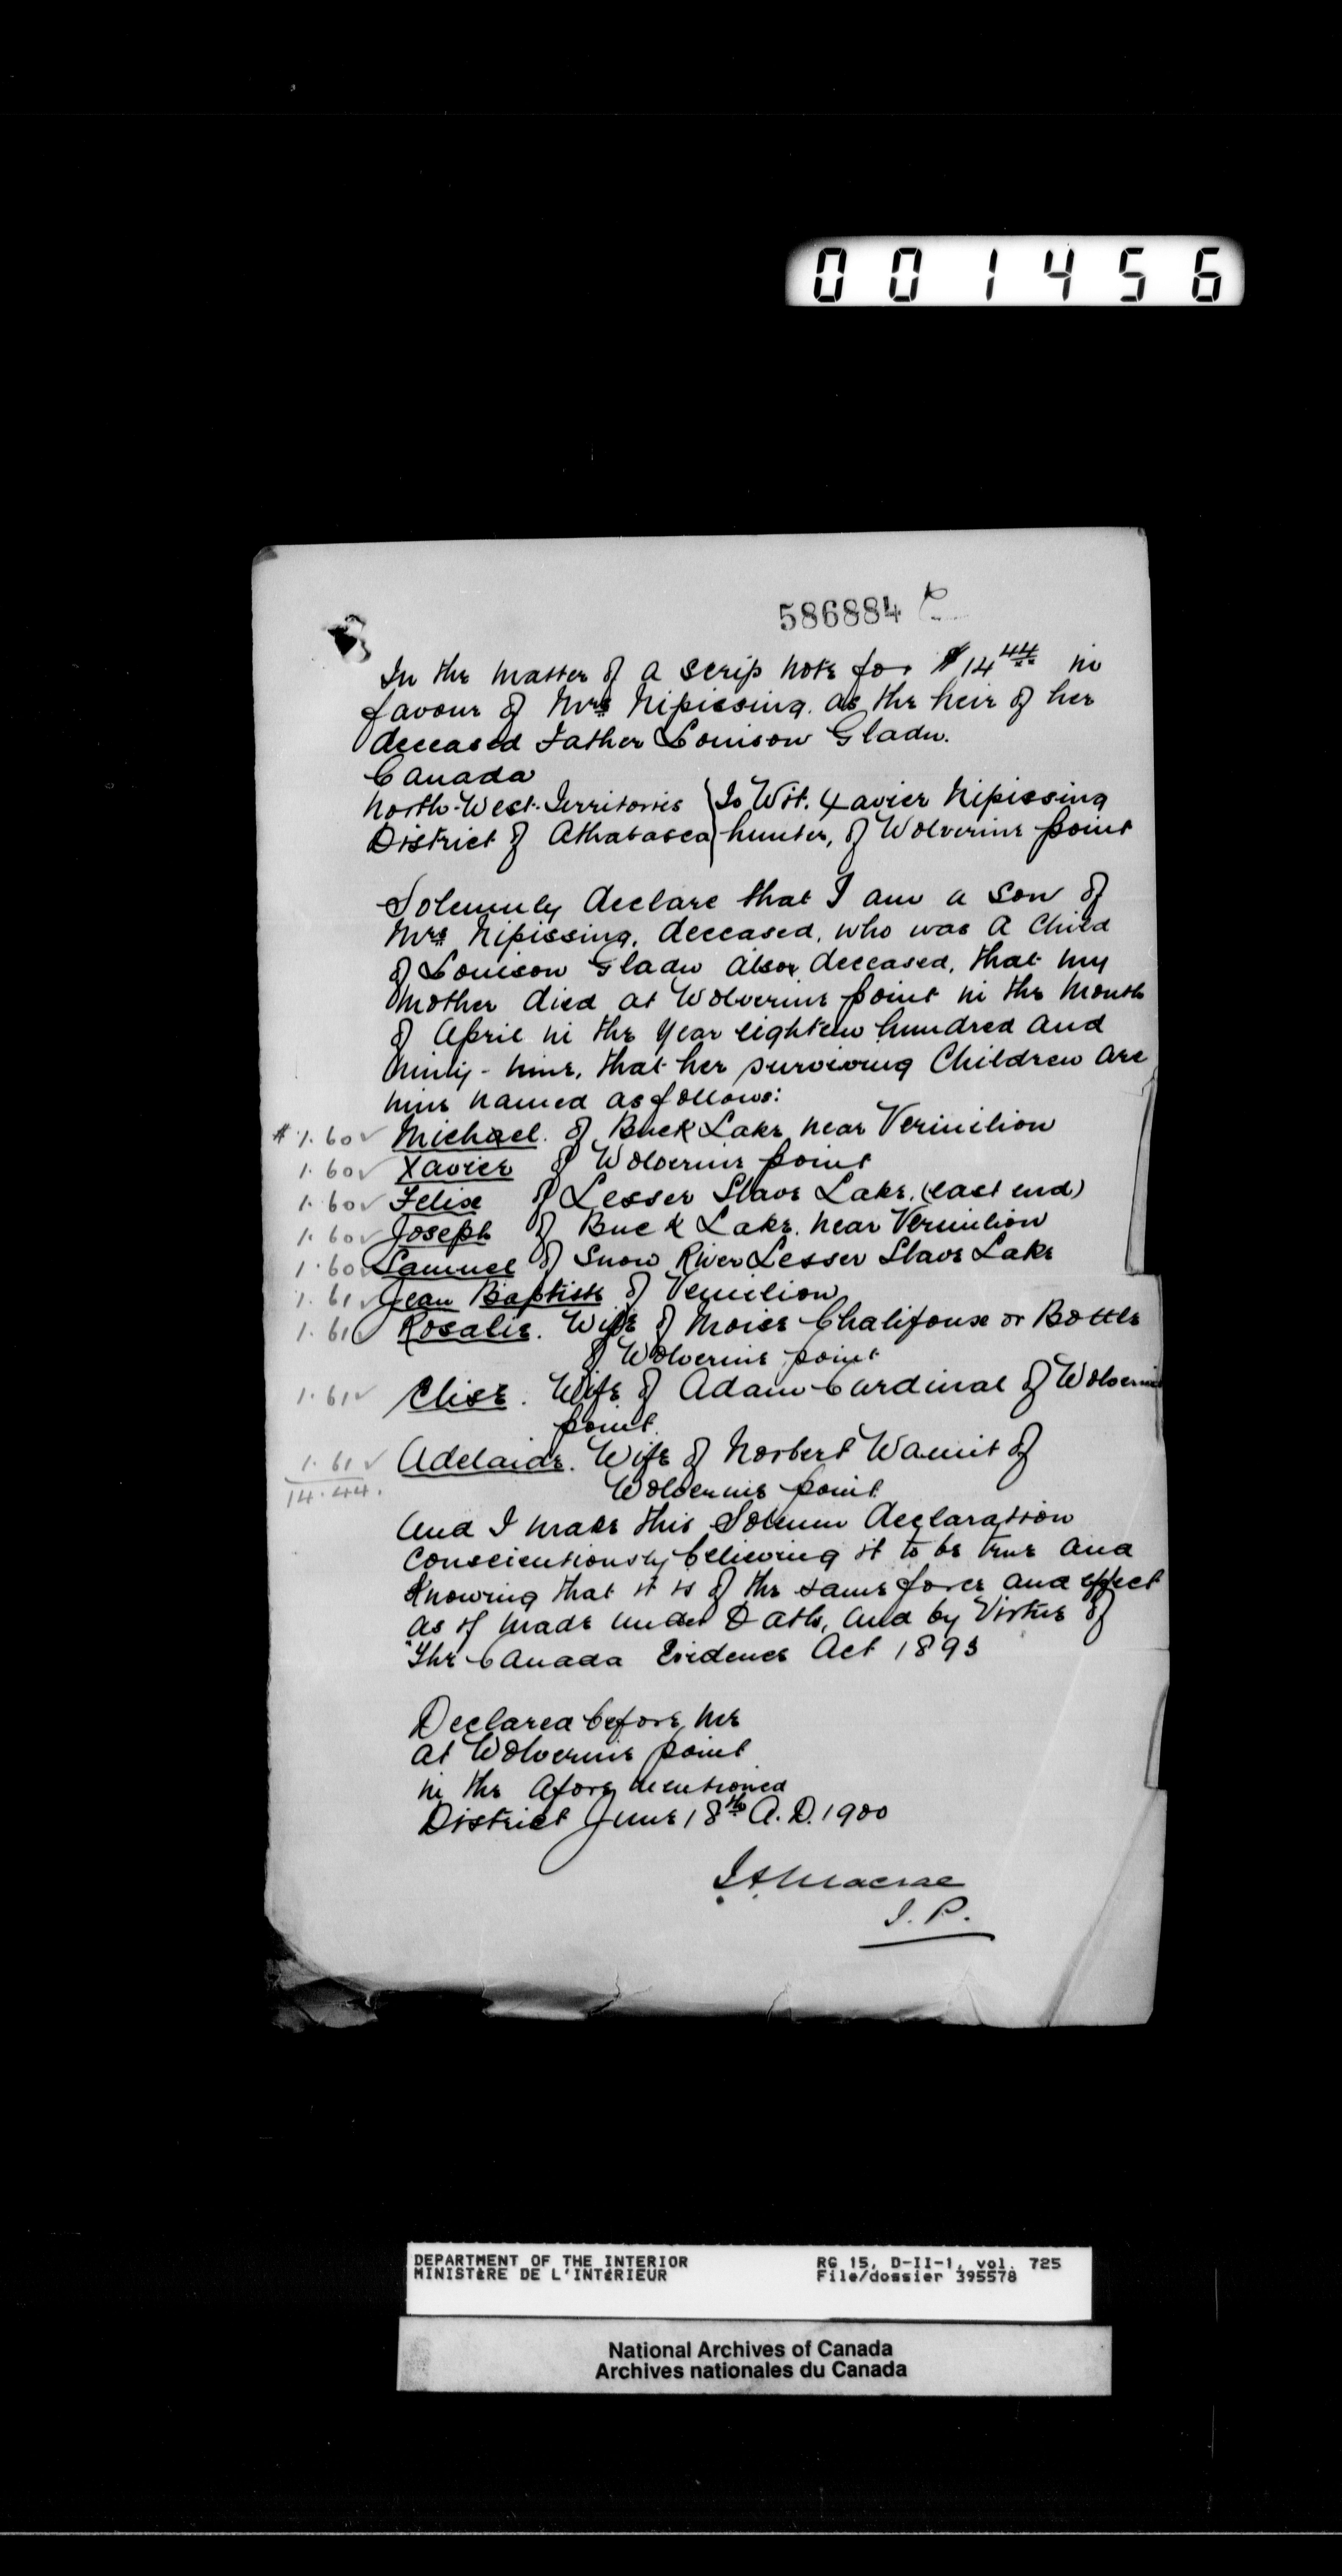 001456
586884
In the matter of a scrip note for $14 44/xx in
favour of Mrs Nipissing. as the heir of her
deceased Father Louison Gladu.
Canada
North-West-Territories } To Wit. Xavier Nipissing
District of Athabasca } hunter, of Wolverine point
Solemnly declare that I am a son of
Mrs Nipissing, deceased, who was a child
of Louison Gladu also, deceased, that my
mother died at Wolverine point in the month
of April in the year eighteen hundred and
ninty-nine, that her surviving Children are
nine named as follows:
$1.60 ✓ Michael. of Buck Lake near Vermilion
1.60 ✓ Xavier of Wolverine point
1.60 ✓ Felix of Lesser Slave Lake, (east end)
1.60 ✓ Joseph of Buck Lake, near Vermilion
1.60 ✓ Samuel of Snow River Lesser Slave Lake
1.61 ✓ Jean Baptiste of Vermilion
1.61 ✓ Rosalie. Wife of Moise Chalifoux or Bottle
of Wolverine point
1.61 ✓ Elise. Wife of Adam Cardinal of Wolverine
point.
1.61 ✓ Adelaide. Wife of Norbert Wanuit of
14.44. Wolverine point
And I make this Solemn declaration
conscientiously believing it to be true and
knowing that it is of the same force and effect
as if made under Oath, and by Virtue of
"The Canada Evidence Act 1893
Declared before me
at Wolverine point
in the afore mentioned
District June 18th A.D. 1900
J A Macrae
J. P.
DEPARTMENT OF THE INTERIOR RG 15, D-II-1, vol. 725
MINISTÈRE DE L'INTÉRIEUR File/dossier 395578
National Archives of Canada
Archives nationales du Canada